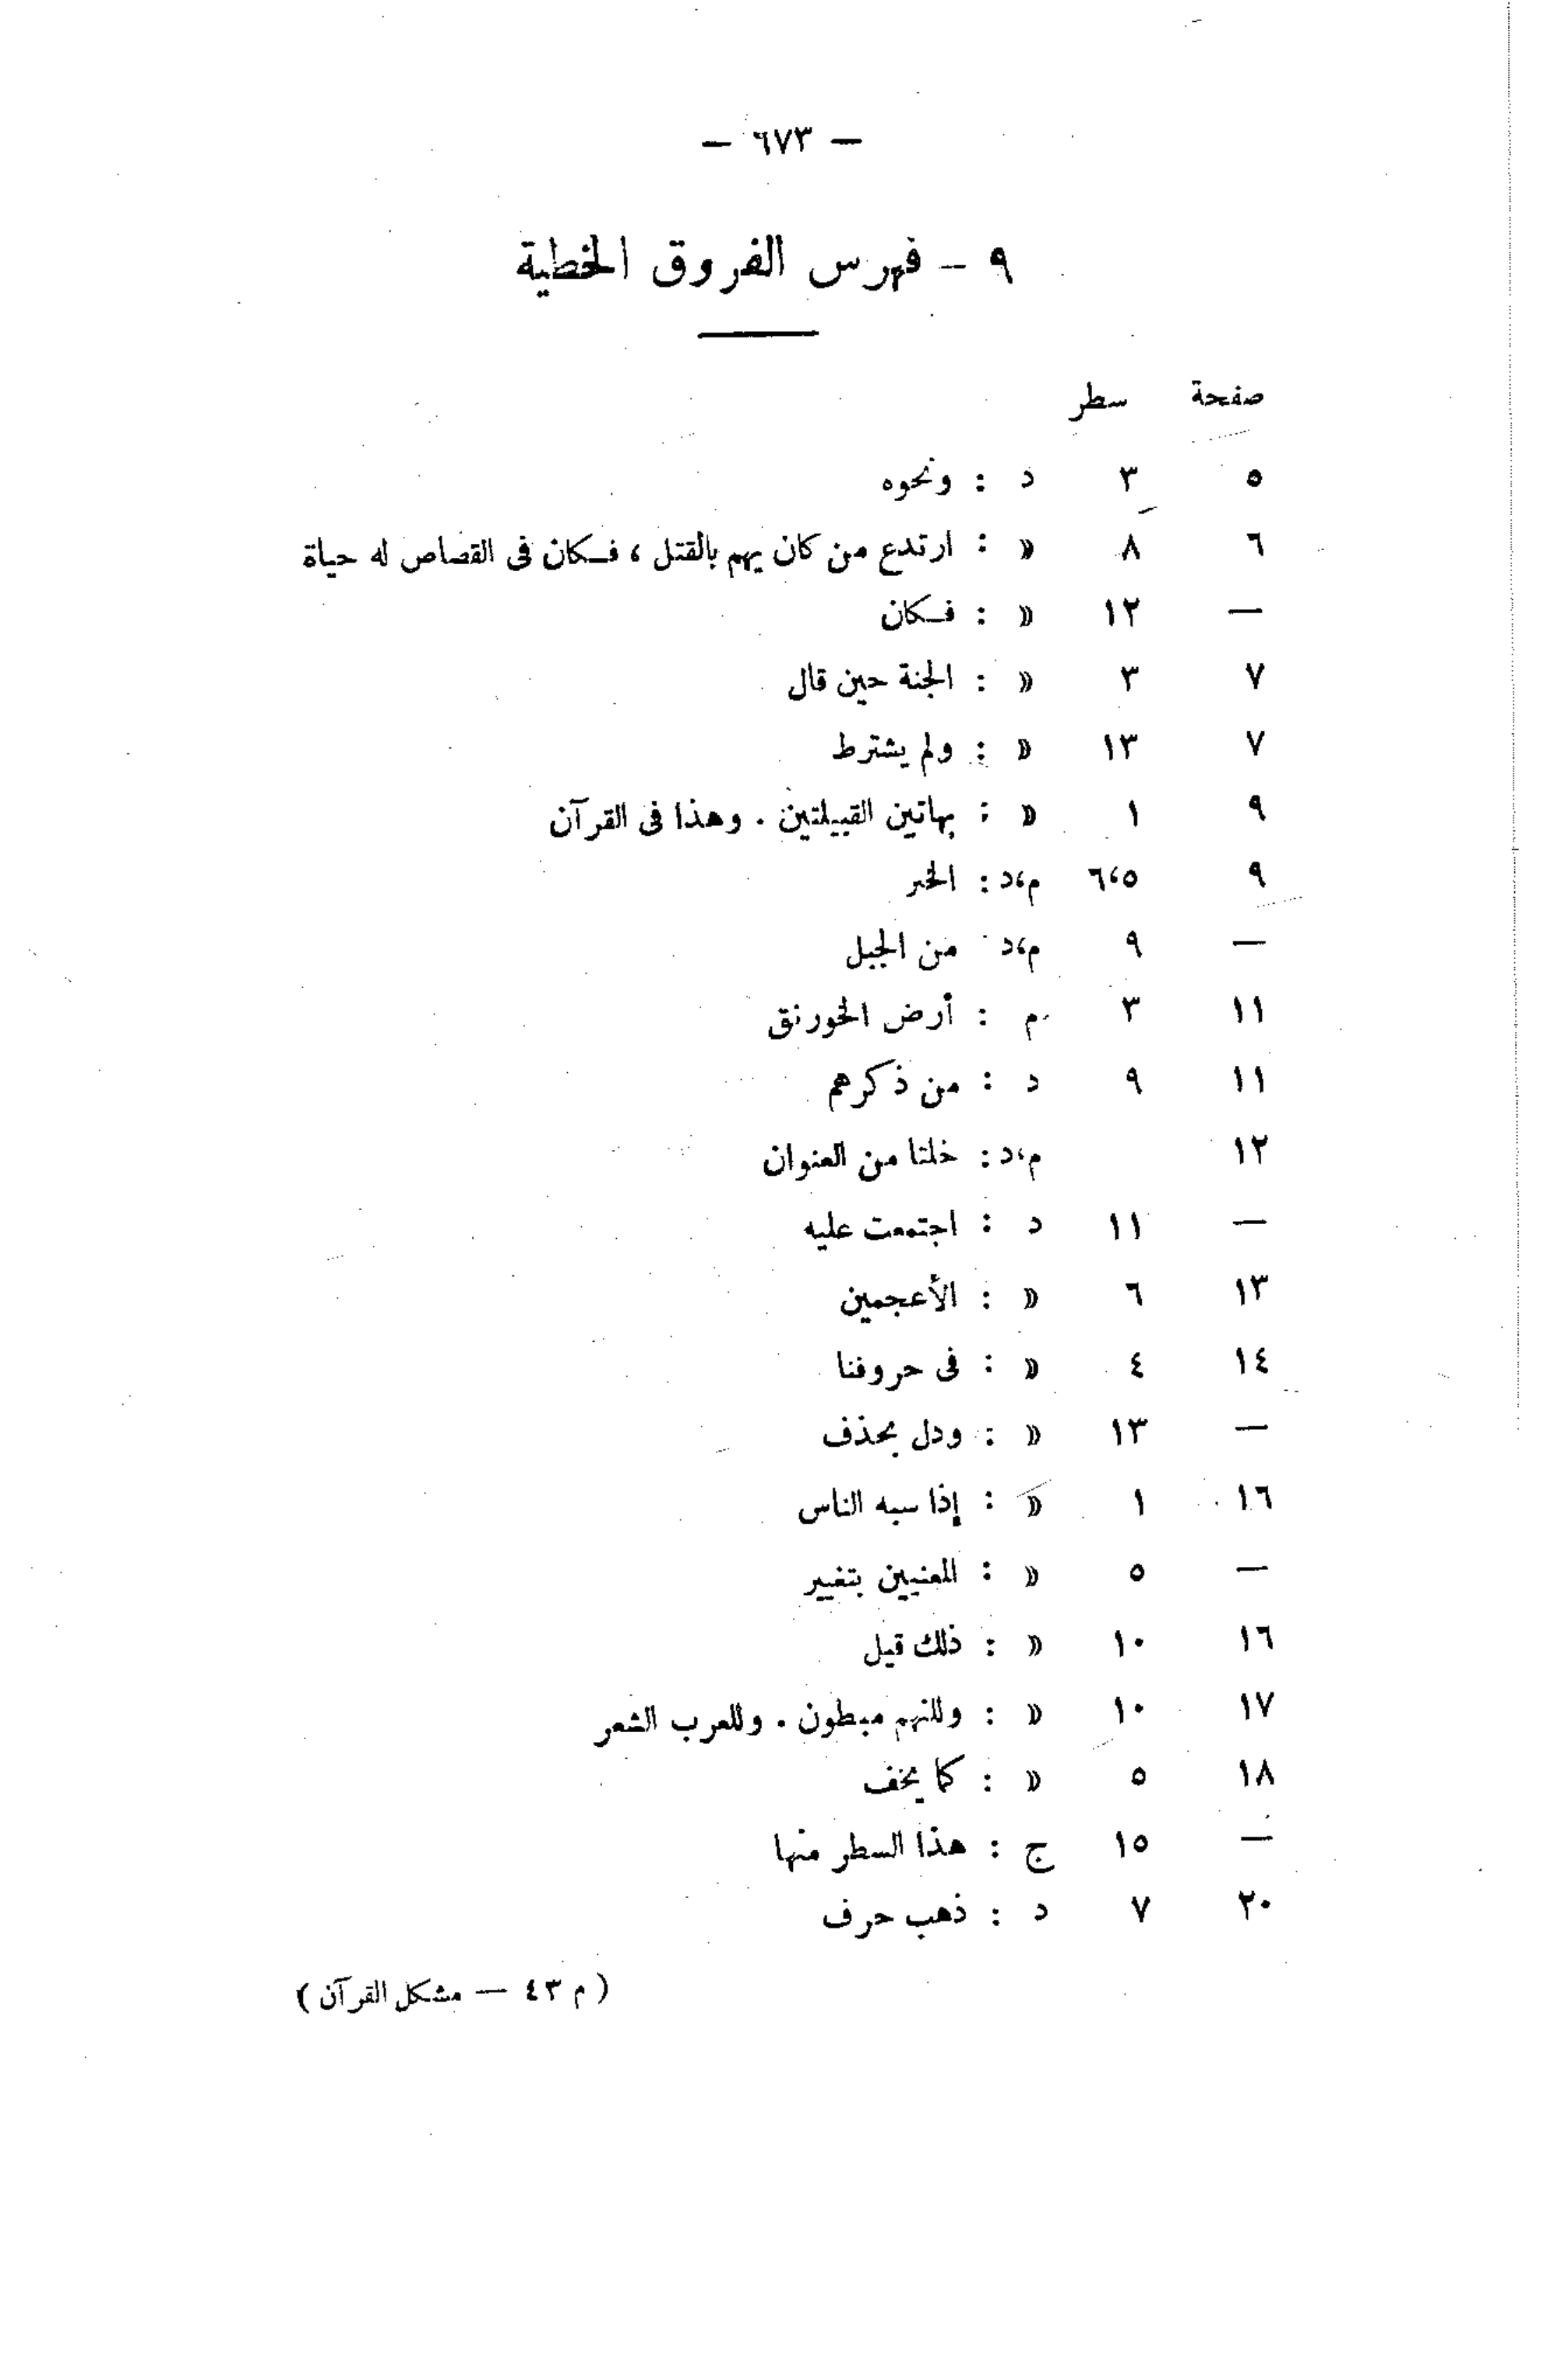 — ٦٧٣ —
٩ - فهرس الفروق الخطية
صفحة سطر
٥ ٣ د : ونحوه
٦ ٨ » : ارتدع من كان يهم بالقتل ، فكان فى القصاص له حياة
— ١٢ » : فكان
٧ ٣ » : الجنة حين قال
٧ ١٣ » : ولم يشترط
٩ ١ » : بهاتين القبيلتين . وهذا فى القرآن
٩ ٥،٦ م،د : الخبر
— ٩ م،د من الجبل
١١ ٣ م : أرض الخورنق
١١ ٩ د : من ذكرهم
١٢ م،د : خلتا من العنوان
— ١١ د : اجتمعت عليه
١٣ ٦ » : الأعجمين
١٤ ٤ » : فى حروفنا
— ١٣ » : ودل بحذف
١٦ ١ » : إذا سبه الناس
— ٥ » : المعنيين بتغيير
١٦ ١٠ » : ذلك قيل
١٧ ١٠ » : وللنهم مبطون . وللعرب الشعر
١٨ ٥ » : كما يخف
— ١٥ ج : هذا السطر منها
٢٠ ٧ د : ذهب حرف
( م ٤٣ — مشكل القرآن )